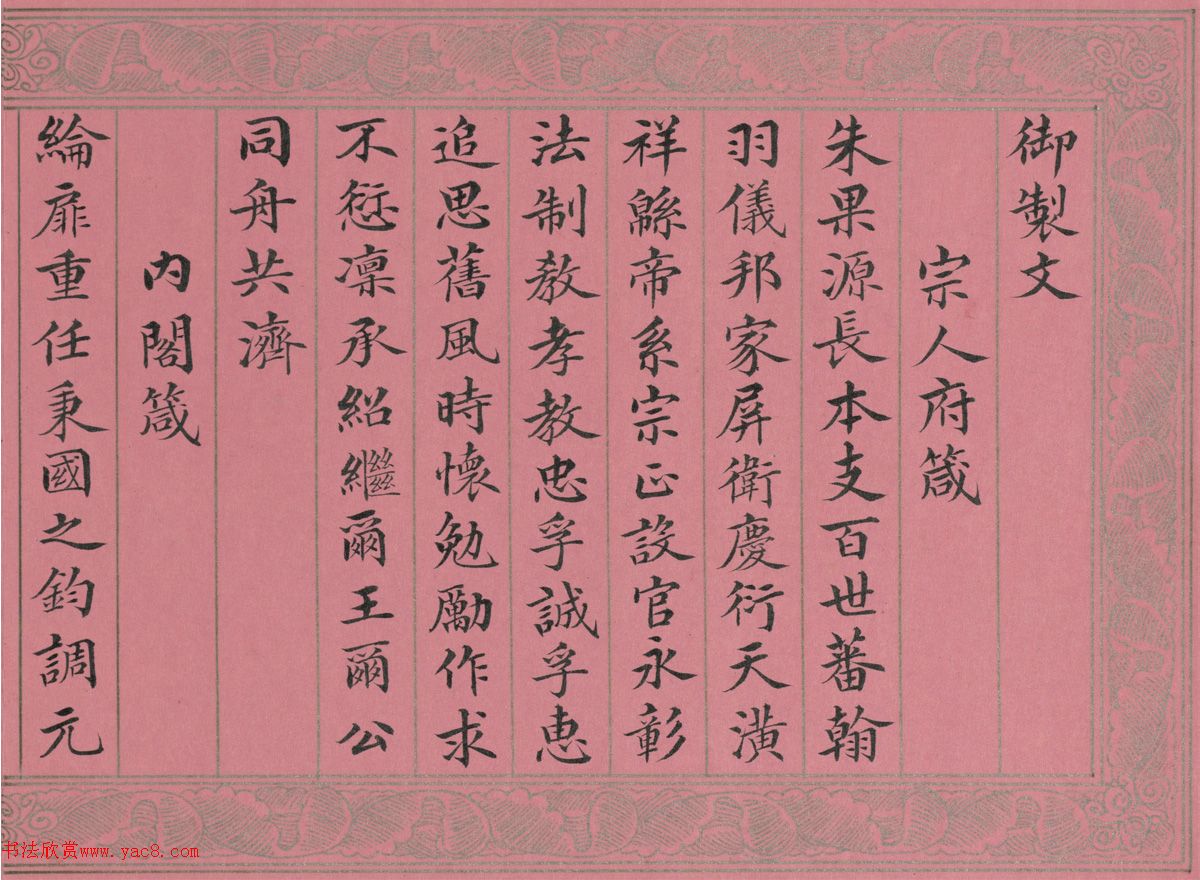 御製文
宗人府箴
朱果源長本支百世蕃翰
羽儀邦家屏衛慶衍天潢
祥緜帝系宗正設官永彰
法制教孝教忠孚誠孚惠
追思舊風時懷勉勵作求
不愆凛承紹繼爾王爾公
同舟共濟
内閣箴
綸扉重任秉國之鈞調元
书法欣赏www.yac8.com